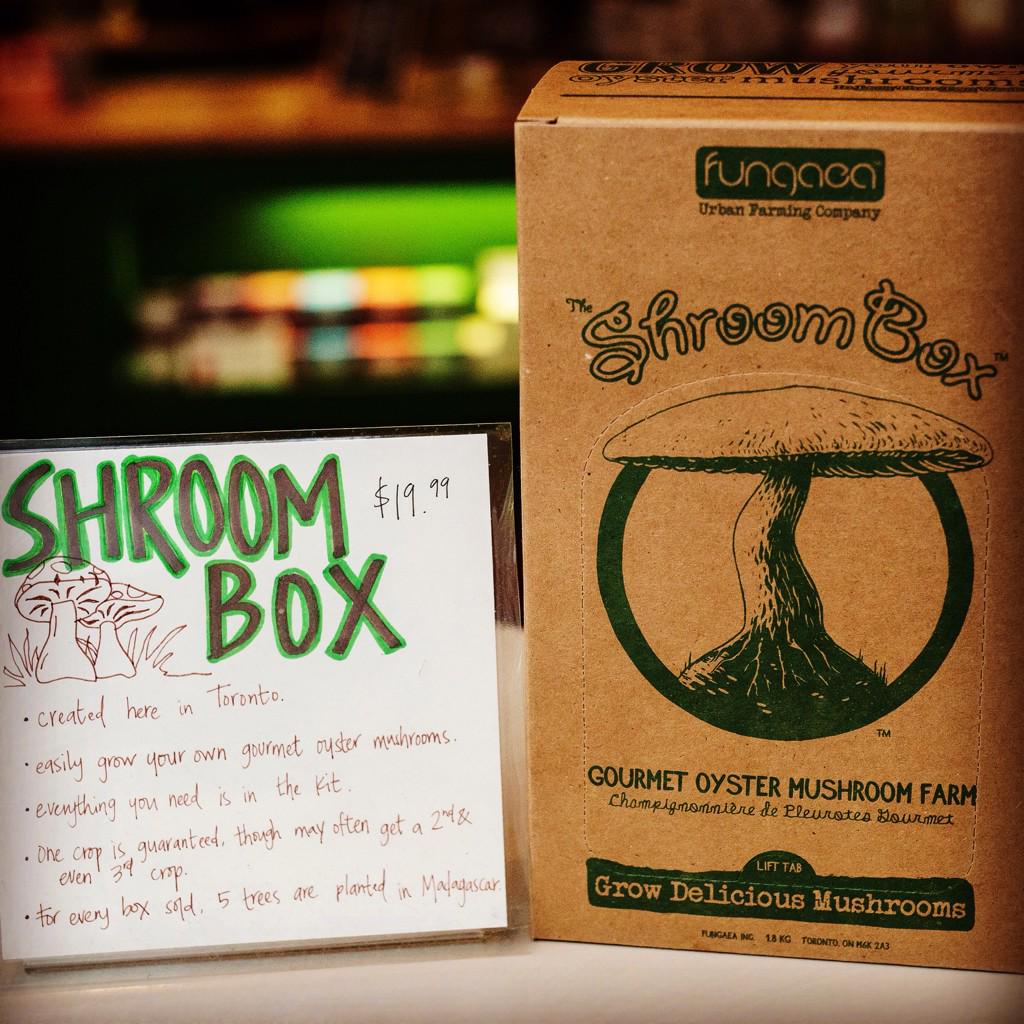 SHROOM
BOX
$19.99
• created here in Toronto.
• easily grow your own gourmet oyster mushrooms.
• everything you need is in the kit.
• One crop is guaranteed, though may often get a 2nd &
even 3rd crop.
• For every box sold, 5 trees are planted in Madagascar.
GROW gourmet
oyster mushrooms
fungaea™
Urban Farming Company
The Shroom Box™
TM
GOURMET OYSTER MUSHROOM FARM
Champignonnière de Pleurotes Gourmet
LIFT TAB
Grow Delicious Mushrooms
FUNGAEA INC. 1.8 KG TORONTO, ON M6K 2A3